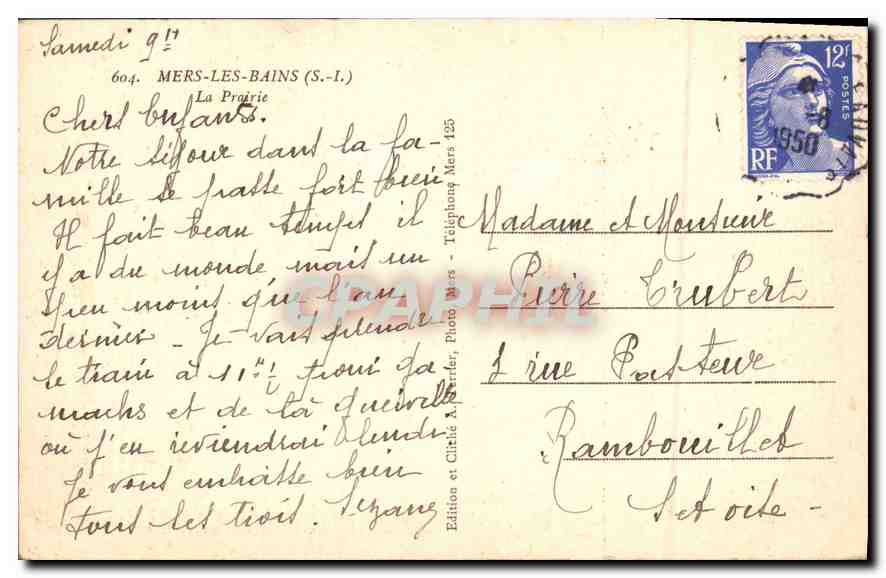 Samedi 9H
604. MERS-LES-BAINS (S.-I.)
La Prairie
Chers Enfants.
Notre séjour dans la fa-
mille se passe fort bien
Il fait beau temps il
y a du monde mais un
peu moins que l'an
dernier - Je vais prendre
le train à 11H pour Ga-
machs et de là
où j'en reviendrai
Je vous embrasse bien
tous les trois.
Edition et Cliché A. Photo, Mers - Téléphone Mers 125
12F
POSTES
RF
-8
1950
Madame et Monsieur
Pierre Trubert
1 rue Pasteur
Rambouillet
S et oise -
CPAPHIL